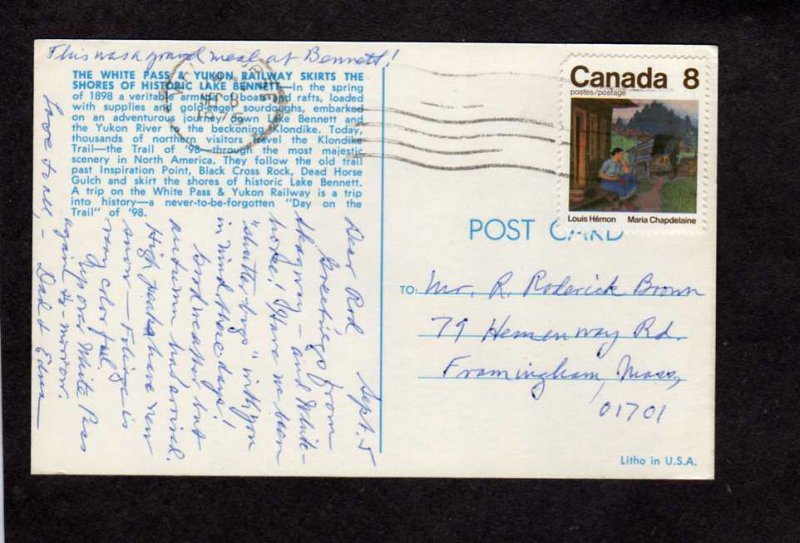 This was a grand meal at Bennett!
THE WHITE PASS & YUKON RAILWAY SKIRTS THE
SHORES OF HISTORIC LAKE BENNETT—In the spring
of 1898 a veritable armada of boats and rafts, loaded
with supplies and gold-eager sourdoughs, embarked
on an adventurous journey down Lake Bennett and
the Yukon River to the beckoning Klondike. Today,
thousands of northern visitors travel the Klondike
Trail—the Trail of '98—through the most majestic
scenery in North America. They follow the old trail
past Inspiration Point, Black Cross Rock, Dead Horse
Gulch and skirt the shores of historic Lake Bennett.
A trip on the White Pass & Yukon Railway is a trip
into history—a never-to-be-forgotten "Day on the
Trail" of '98.
Sept. 5
Dear Rod
Greetings from
Skagway - and White-
horse! Have we been
"shutter bugs" with you
in mind these days!
Good weather but
autumn has arrived.
High peaks have new
snow - Foliage is
very colorful.
Up over White Pass
again to-morrow.
Love to all, - Dad &
Canada 8
postes/postage
Louis Hémon Maria Chapdelaine
POST CARD
TO: Mr. R. Roderick Brown
79 Hemenway Rd.
Framingham, Mass,
01701
Litho in U.S.A.